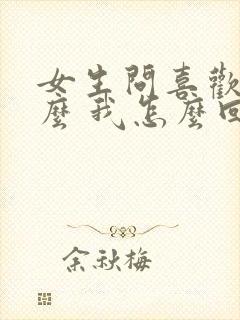 女生問喜歡
麼我怎麼回
余秋梅